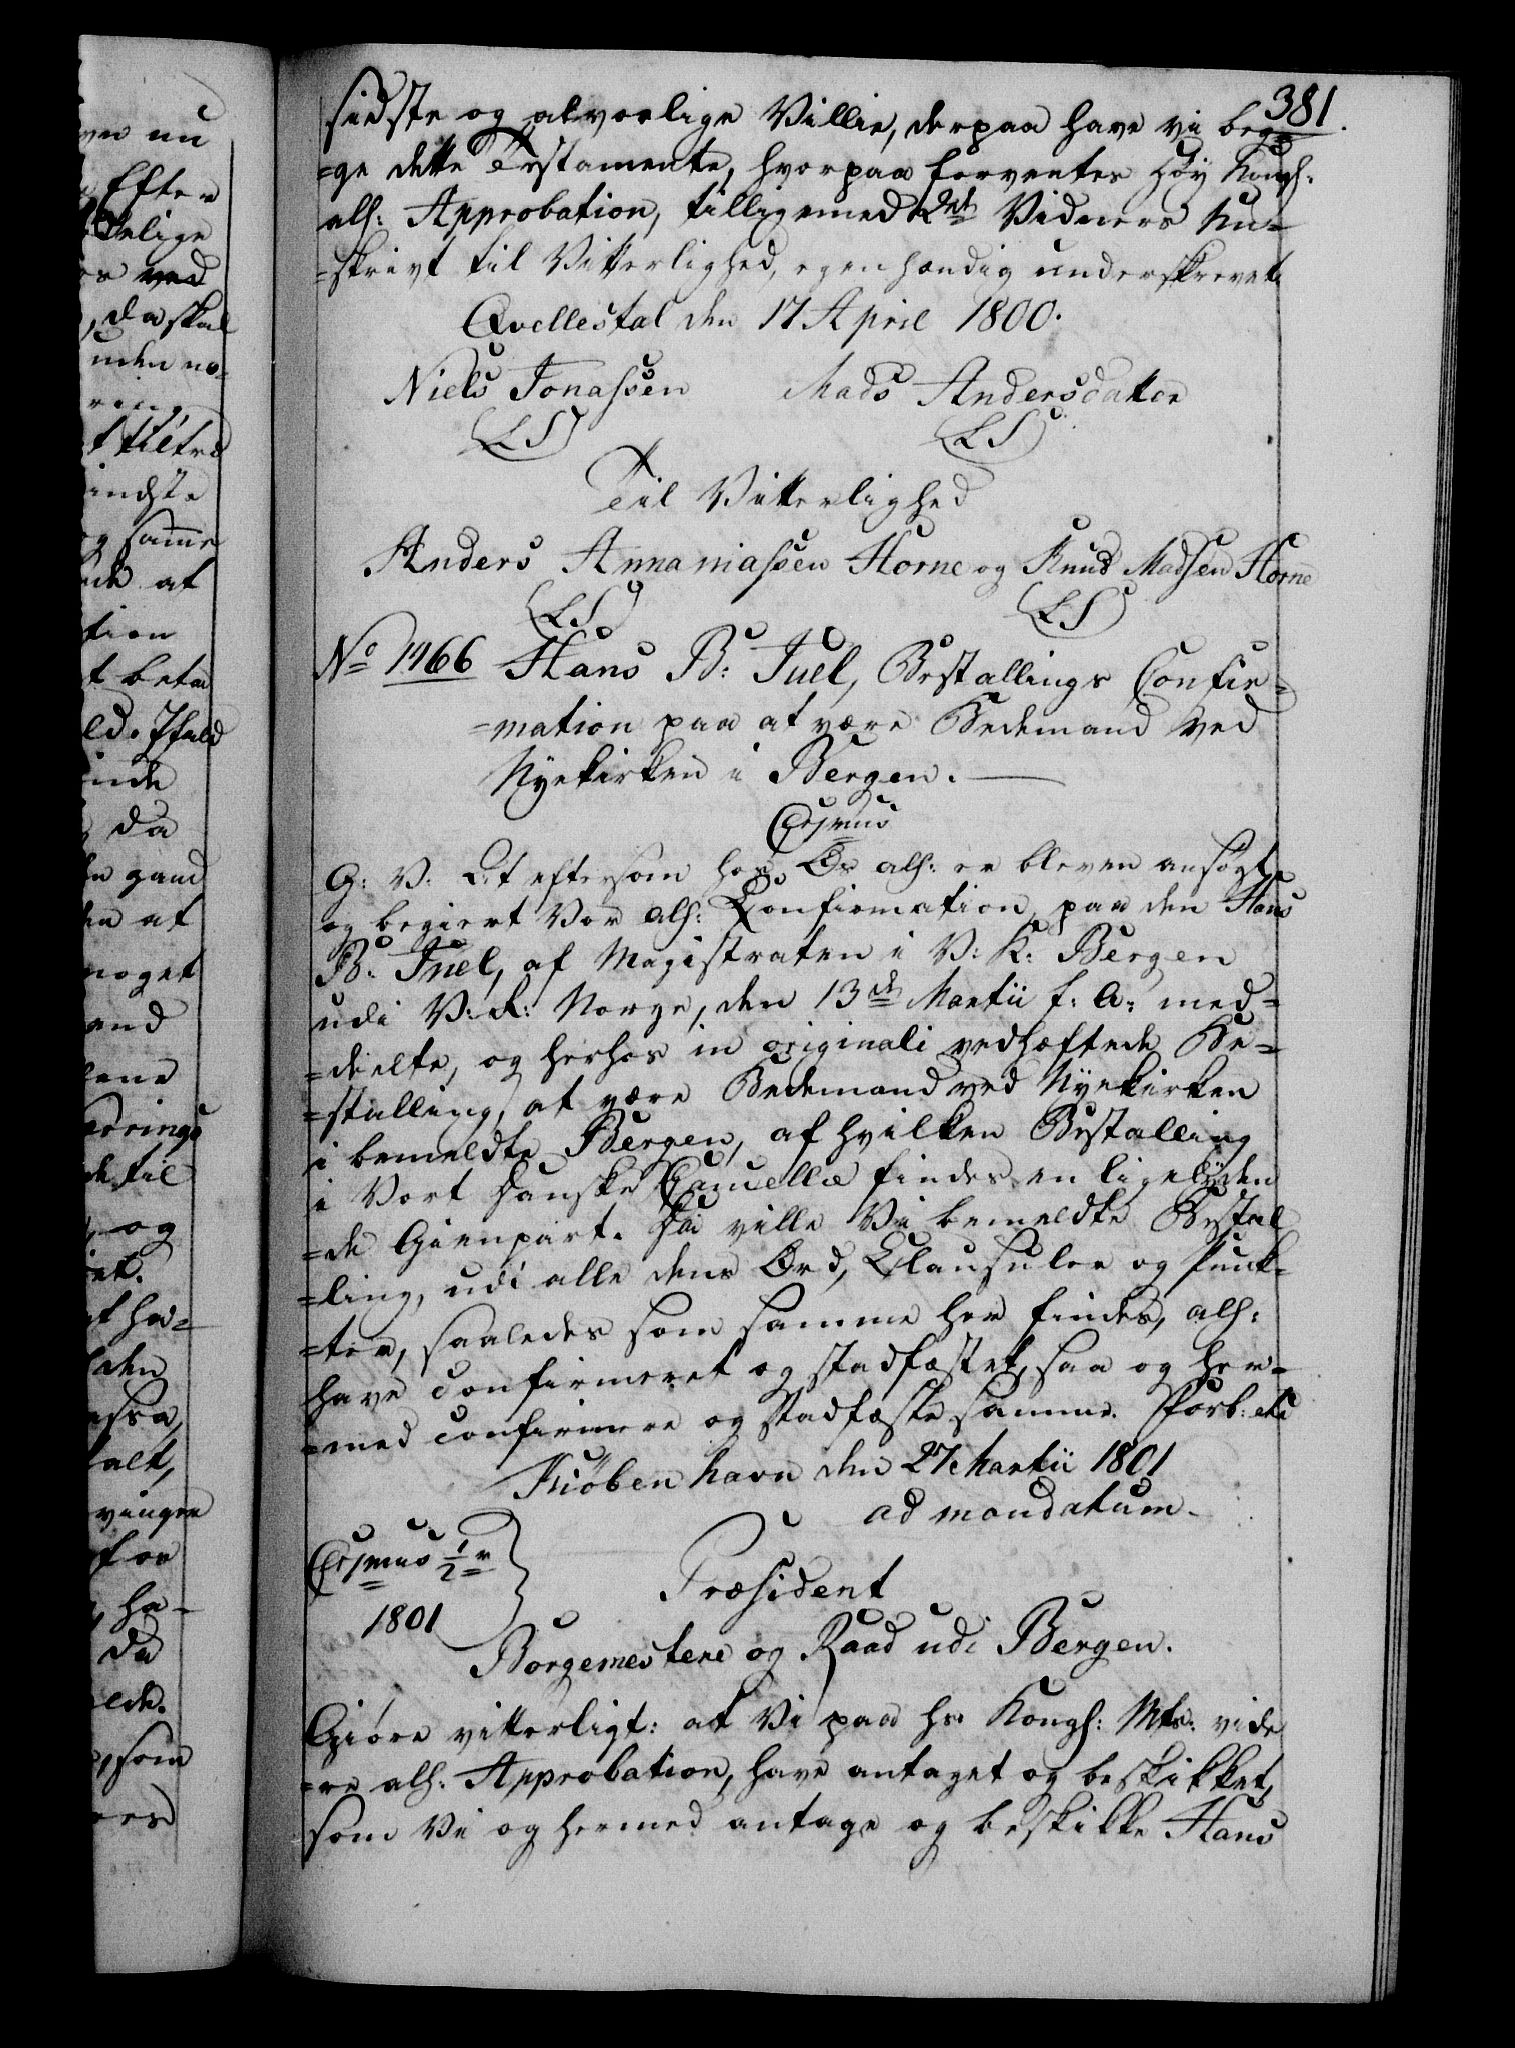 381.
sidste og alvorlige Villie, derpaa have vi beg-
-ge dette Testamente, hvorpaa forventes Høy Kongl:
all: Approbation, tilligemed 2de Vidners Un-
-skrivt til Vitterlighed, egenhændig underskrevet.
Qvellestal den 17 April 1800.
Niels Jonassen Mads Andersdatter
(LS) (LS)
Til Vitterlighed
Anders Annaniassen Horne og Knud Madsen Horne
(LS) (LS)
No 1466 Hans B: Juel, Bestallings Confir-
-mation paa at være Bedemand ved
Nyekirken i Bergen.
G: V: At eftersom hos Os all: er bleven ansøgt
og begiert Vor all: Confirmation paa den Hans
B: Juel, af Magistraten i V: K: Bergen
udi V: R: Norge, den 13de Martii h: a: med-
-deelte, og herhos in originali vedhæftede Be-
-stalling, at være Bedemand ved Nyekirken
i bemeldte Bergen, af hvilken Bestalling
i Vort Danske Cancellie findes en ligelyden
-de Gienpart. Da ville Vi bemeldte Bestal
-ling, udi alle dens Ord, Clausuler og Punk-
-ter, saaledes som samme her findes, all:
have confirmeret og stadfæstet, saa og her-
-med confirmere og stadfæste samme. Forb: etc
Kiöbenhavn den 27 Martii 1801
ad mandatum.
1/2 r
1801
Præsident
Borgemestere og Raad udi Bergen.
Giöre vitterligt: at Vi paa hs: Kongl: Mts: vide
-re all: Approbation, have antaget og beskikket,
som Vi og hermed antage og beskikke Hans